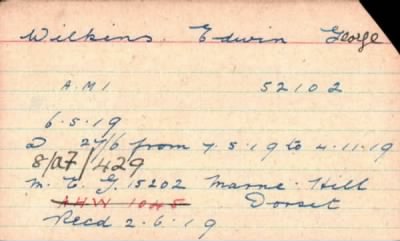 Wilkins. Edwin George
A.M.1 52102
6.5.19
D 27/6 from 7.5.19 to 4.11.19
8/a7/429
M. E. G. 15202 Marne. Hill
A.H.W. 1045 Dorset
Recd 2.6.19